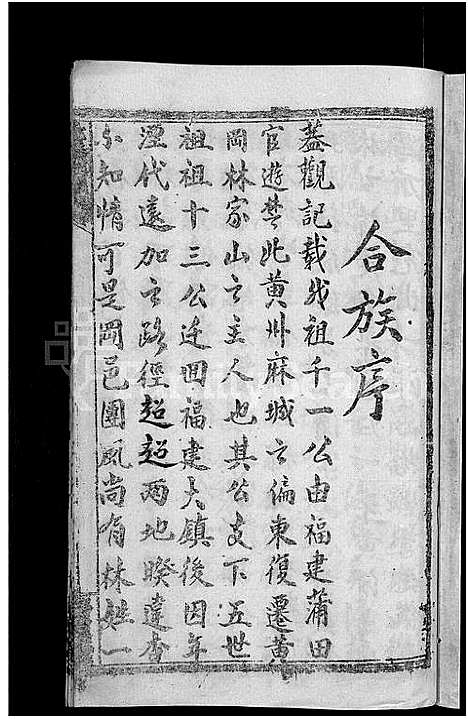 合族序
蓋觀記载我祖千一公由福建蒲田
官遊楚北黄州麻城之偏東復遷黄
岡林家山之主人也其公支下五世
祖祖十三公迁回福建大鎮後因年
湮代遠加之路徑超超兩地暌違杳
不知情可是岡邑團風尚有林姓一